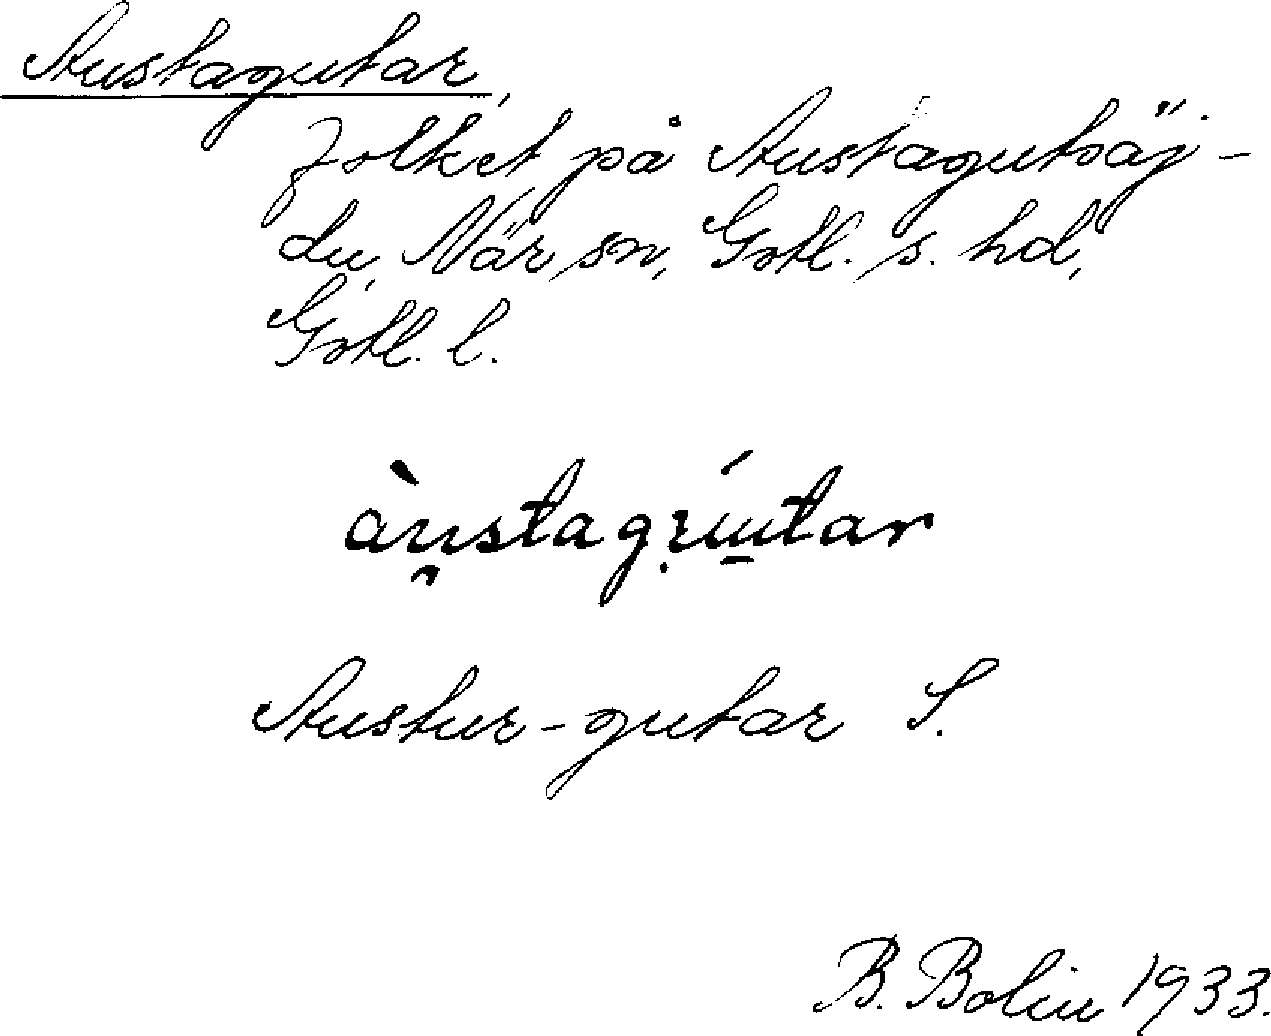 Austagutar,
folket på Austagutsäj-
du, När sn, Gotl. s. hd,
Gotl. l.
Austur-gutar S.
B. Bolin 1933.